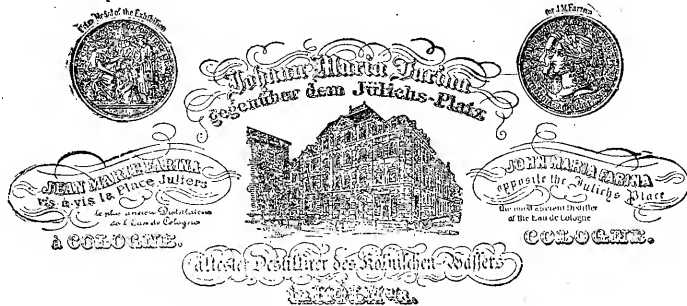 Prize Medal of the Exhibition
for J.M. Farina
Johann Maria Farina
gegenüber dem Jülichs-Platz
JEAN MARIE FARINA
vis-à-vis la Place Juliers
le plus ancien Distillateur
de l'Eau de Cologne
à COLOGNE.
JOHN MARIA FARINA
opposite the Julichs Place
the most ancient Distiller
of the Eau de Cologne
COLOGNE.
ältester Destillirer des Kölnischen Wassers